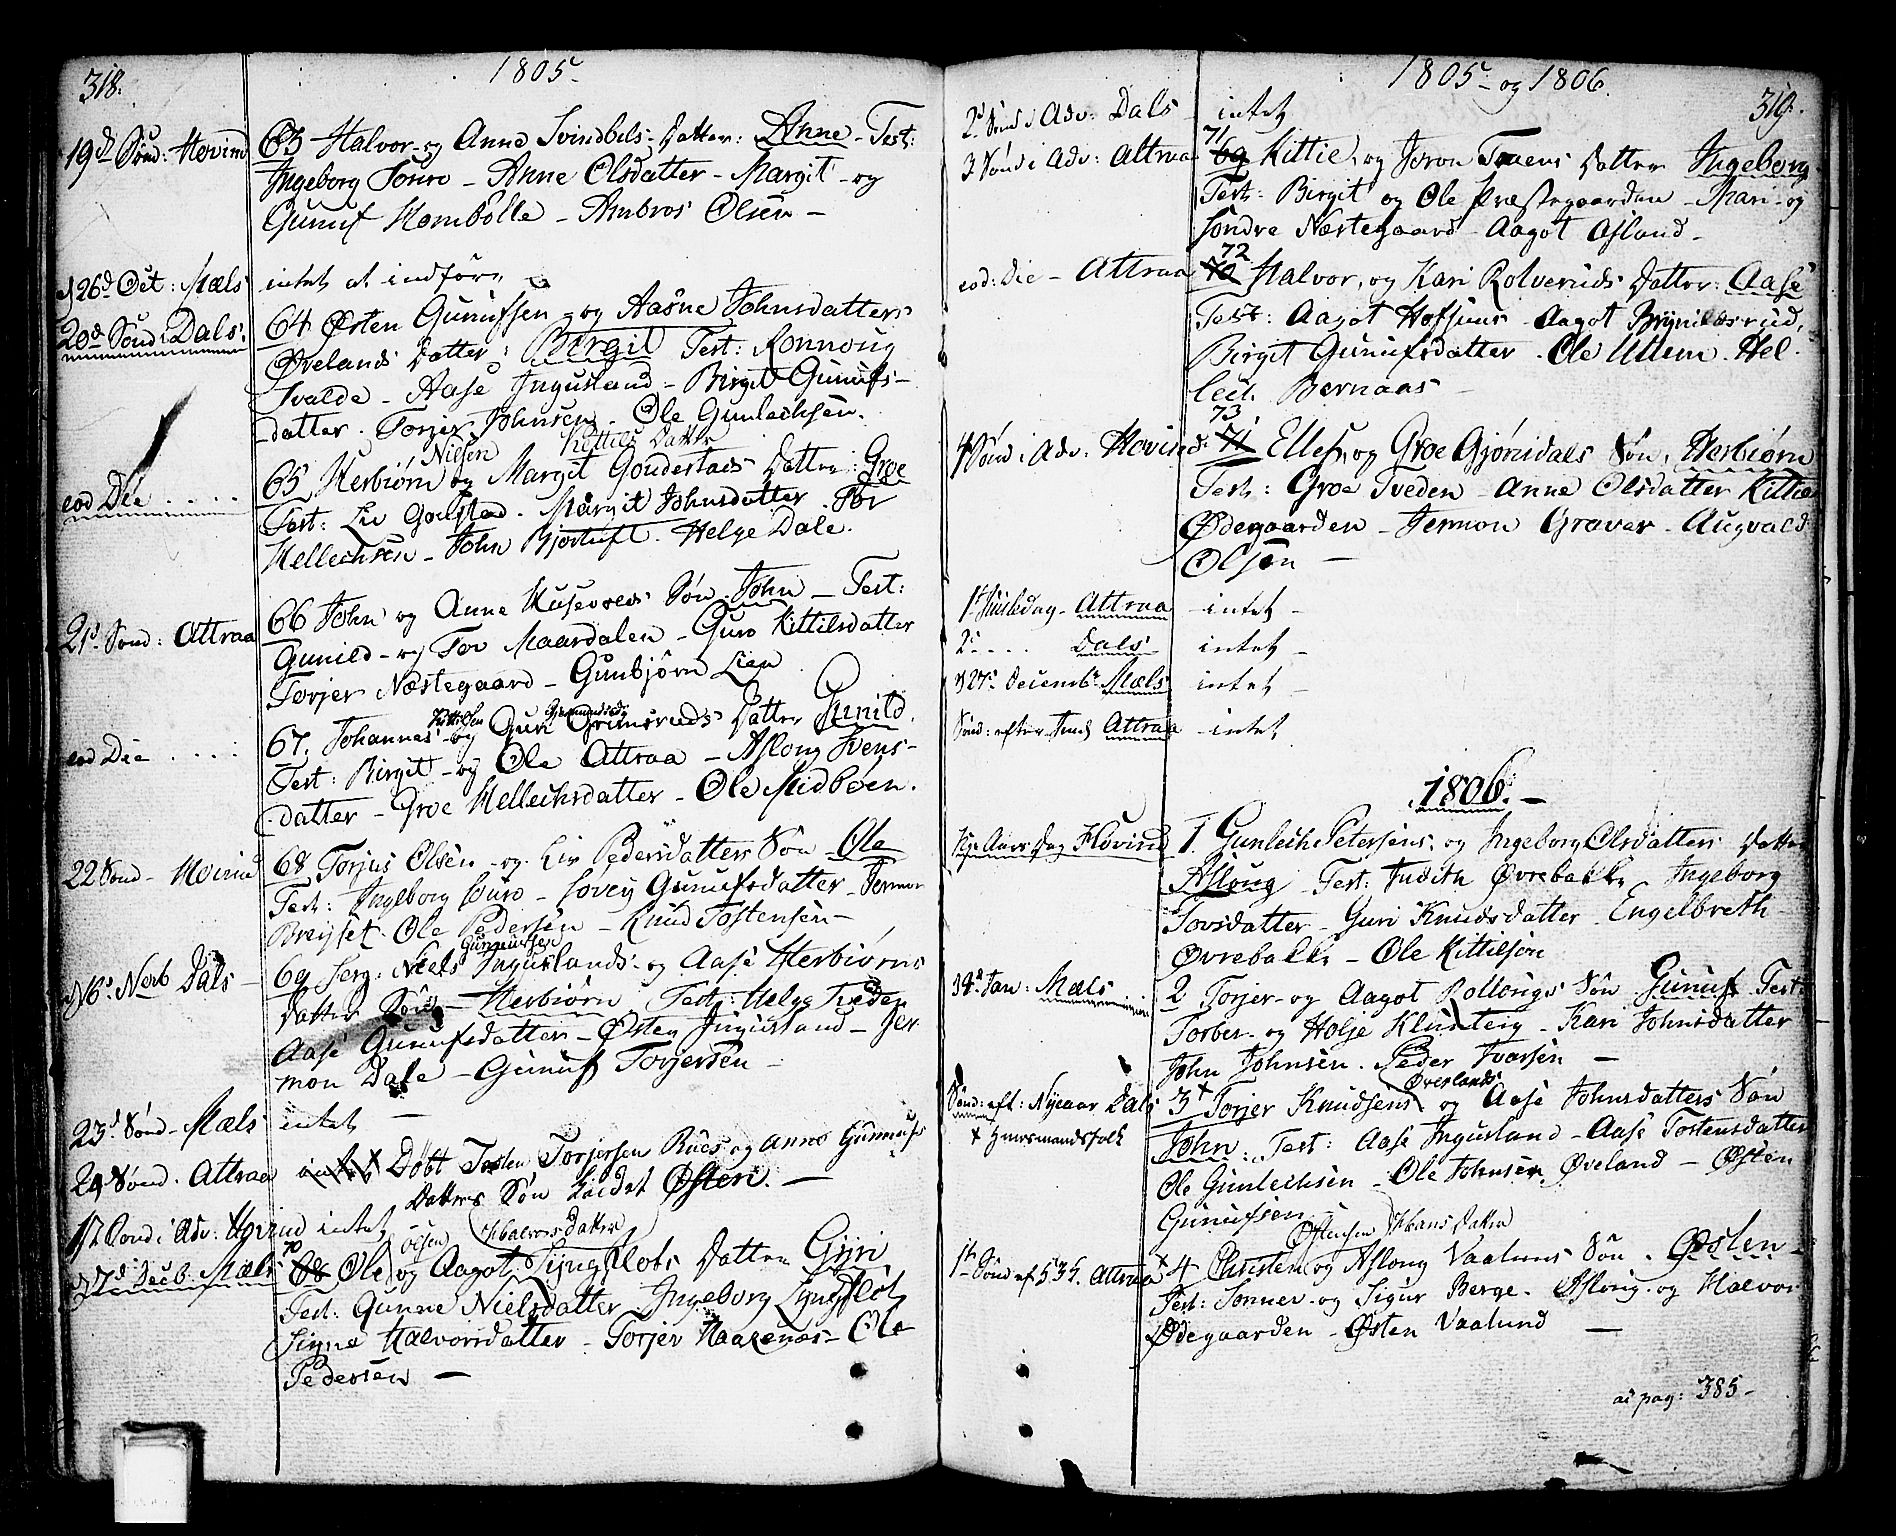 318.
1805
19d Sønd: Hovind
63 Halvor og Anne Svindbøls Datter: Anne Test:
Ingeborg Souro - Anne Olsdatter - Margit og
Gunuf Hombolle - Ambros Olsen -
d 26d Oct: Mæls
intet at indføre
20d Sønd: Dals.
64 Østen Gunufsen og Aasne Johnsdatters
Øvelands Datter: Birgit Test: Ronnoug
Svalde - Aase Ingusland - Birgit Gunufs-
datter. Torjer Johnsen. Ole Gunlechsen.
Nielsen Kittils Datter
eod Die . . . .
65 Herbiørn og Margit Datter: Groe
Test: Liv Gaustad. Margit Johnsdatter. Tor
Hellechsen - John Bjortuft. Helge Dale.
21d Sønd: Attraa
66 John og Anne Husevolds Søn John - Test:
Gunild - og Tor Maardalen - Guro Kittilsdatter
Torjer Næstegaard - Gunbjørn Lien
Kittilsen
eod Die . . . .
67. Johannes og Guri Grimsruds Datter Gunild.
Test: Birgit - og Ole Attraa - Aslong Svens-
datter - Groe Hellechsdatter - Ole Midbøen.
22 Sønd - Hovind
68 Torjus Olsen og Liv Pedersdatters Søn Ole
Test: Ingeborg Souro - Sovey Gunufsdatter - Jermon
Ole Pedersen - Knud Tostensen -
Gunnufsen
d 6d Novb Dals -
69 Serg: Niels Inguslands og Aase Herbiørns
Datters Søn - Herbiørn Test: Helge Tveden
Aase Gunufsdatter - Østen Ingusland - Jer
mon Dale - Gunuf Torjersen -
23d Sønd - Mæls
intet -
24 Sønd. Attraa
intet Døbt Tosten Torjersen Ruds og Anne Gunnufs
Datters Søn kaldet Østen. -
1te Sønd i Adv: Hovind
intet
Olsen Halvors Datter
d 7d Decb. Mæls
70
68 Ole og Aagot Ljyngflots Datter Gjøri
Test: Gunne Nielsdatter Ingeborg Lyngflot
Signe Halvorsdatter - Torjer Haakenæs - Ole
Pedersen -
1805 og 1806.
319.
2d Sønd i Adv: Dals
intet
3 Sønd i Adv: Attraa
71
69 Kittil, og Joron Traens Datter Ingeborg
Test: Birgit og Ole Præstegaarden - Mari og
Søndre Næstegaard - Aagot Asland -
eod: Die - Attraa
72
70 Halvor, og Kari Rolveruds Datter: Aase
Test: Aagot Hofsuus - Aagot Brynildsrud,
Birgit Gunufsdatter. Ole Uttern. Hel
lech Bernaas -
4 Sønd i Adv: Hovind.
73
71 Ellef, og Groe Gjønidals Søn, Herbiørn
Test: Groe Tveden - Anne Olsdatter Kittil
Ødegaarden - Jermon Graver - Augvald
Olsen -
1te Juledag - Attraa
intet -
2d . . . . Dals
intet -
d 27d Decembr Mæls
intet -
Sønd: efter Juul Attraa
intet
1806. -
Nye Aars Dag Hovind
1. Gunlech Petersens, og Ingeborg Olsdatters Datter
Aslong - Test: Judith Øvrebakke Ingeborg
Torsdatter - Guri Knudsdatter - Engelbreth
Øvrebakke - Ole Kittilsen
d 4d Jan: Mæls
2 Torjer og Aagot Rollougs Søn Gunuf Test:
Torber og Holje Klunteig - Kari Johnsdatter
John Johnsen. Peder Ivarsen -
Øverlands
Sønd: eft: Nyeaar Dals
3+ Torjer Knudsens og Aase Johnsdatters Søn
+ Huusmandsfolk
John: Test: Aase Ingusland - Aase Tostensdatter
Ole Gunlechsen - Ole Johnsen. Øveland - Østen
Gunufsen -
Østensen Hans Datter
1te Sønd ef H 3 K. Attraa
+ 4 Christen og Aslong Vaalunds Søn. Østen -
Test: Sonner og Sigur Berge. Aslong og Halvor
Ødegaarden - Østen Vaalund -
ad pag: 385 -